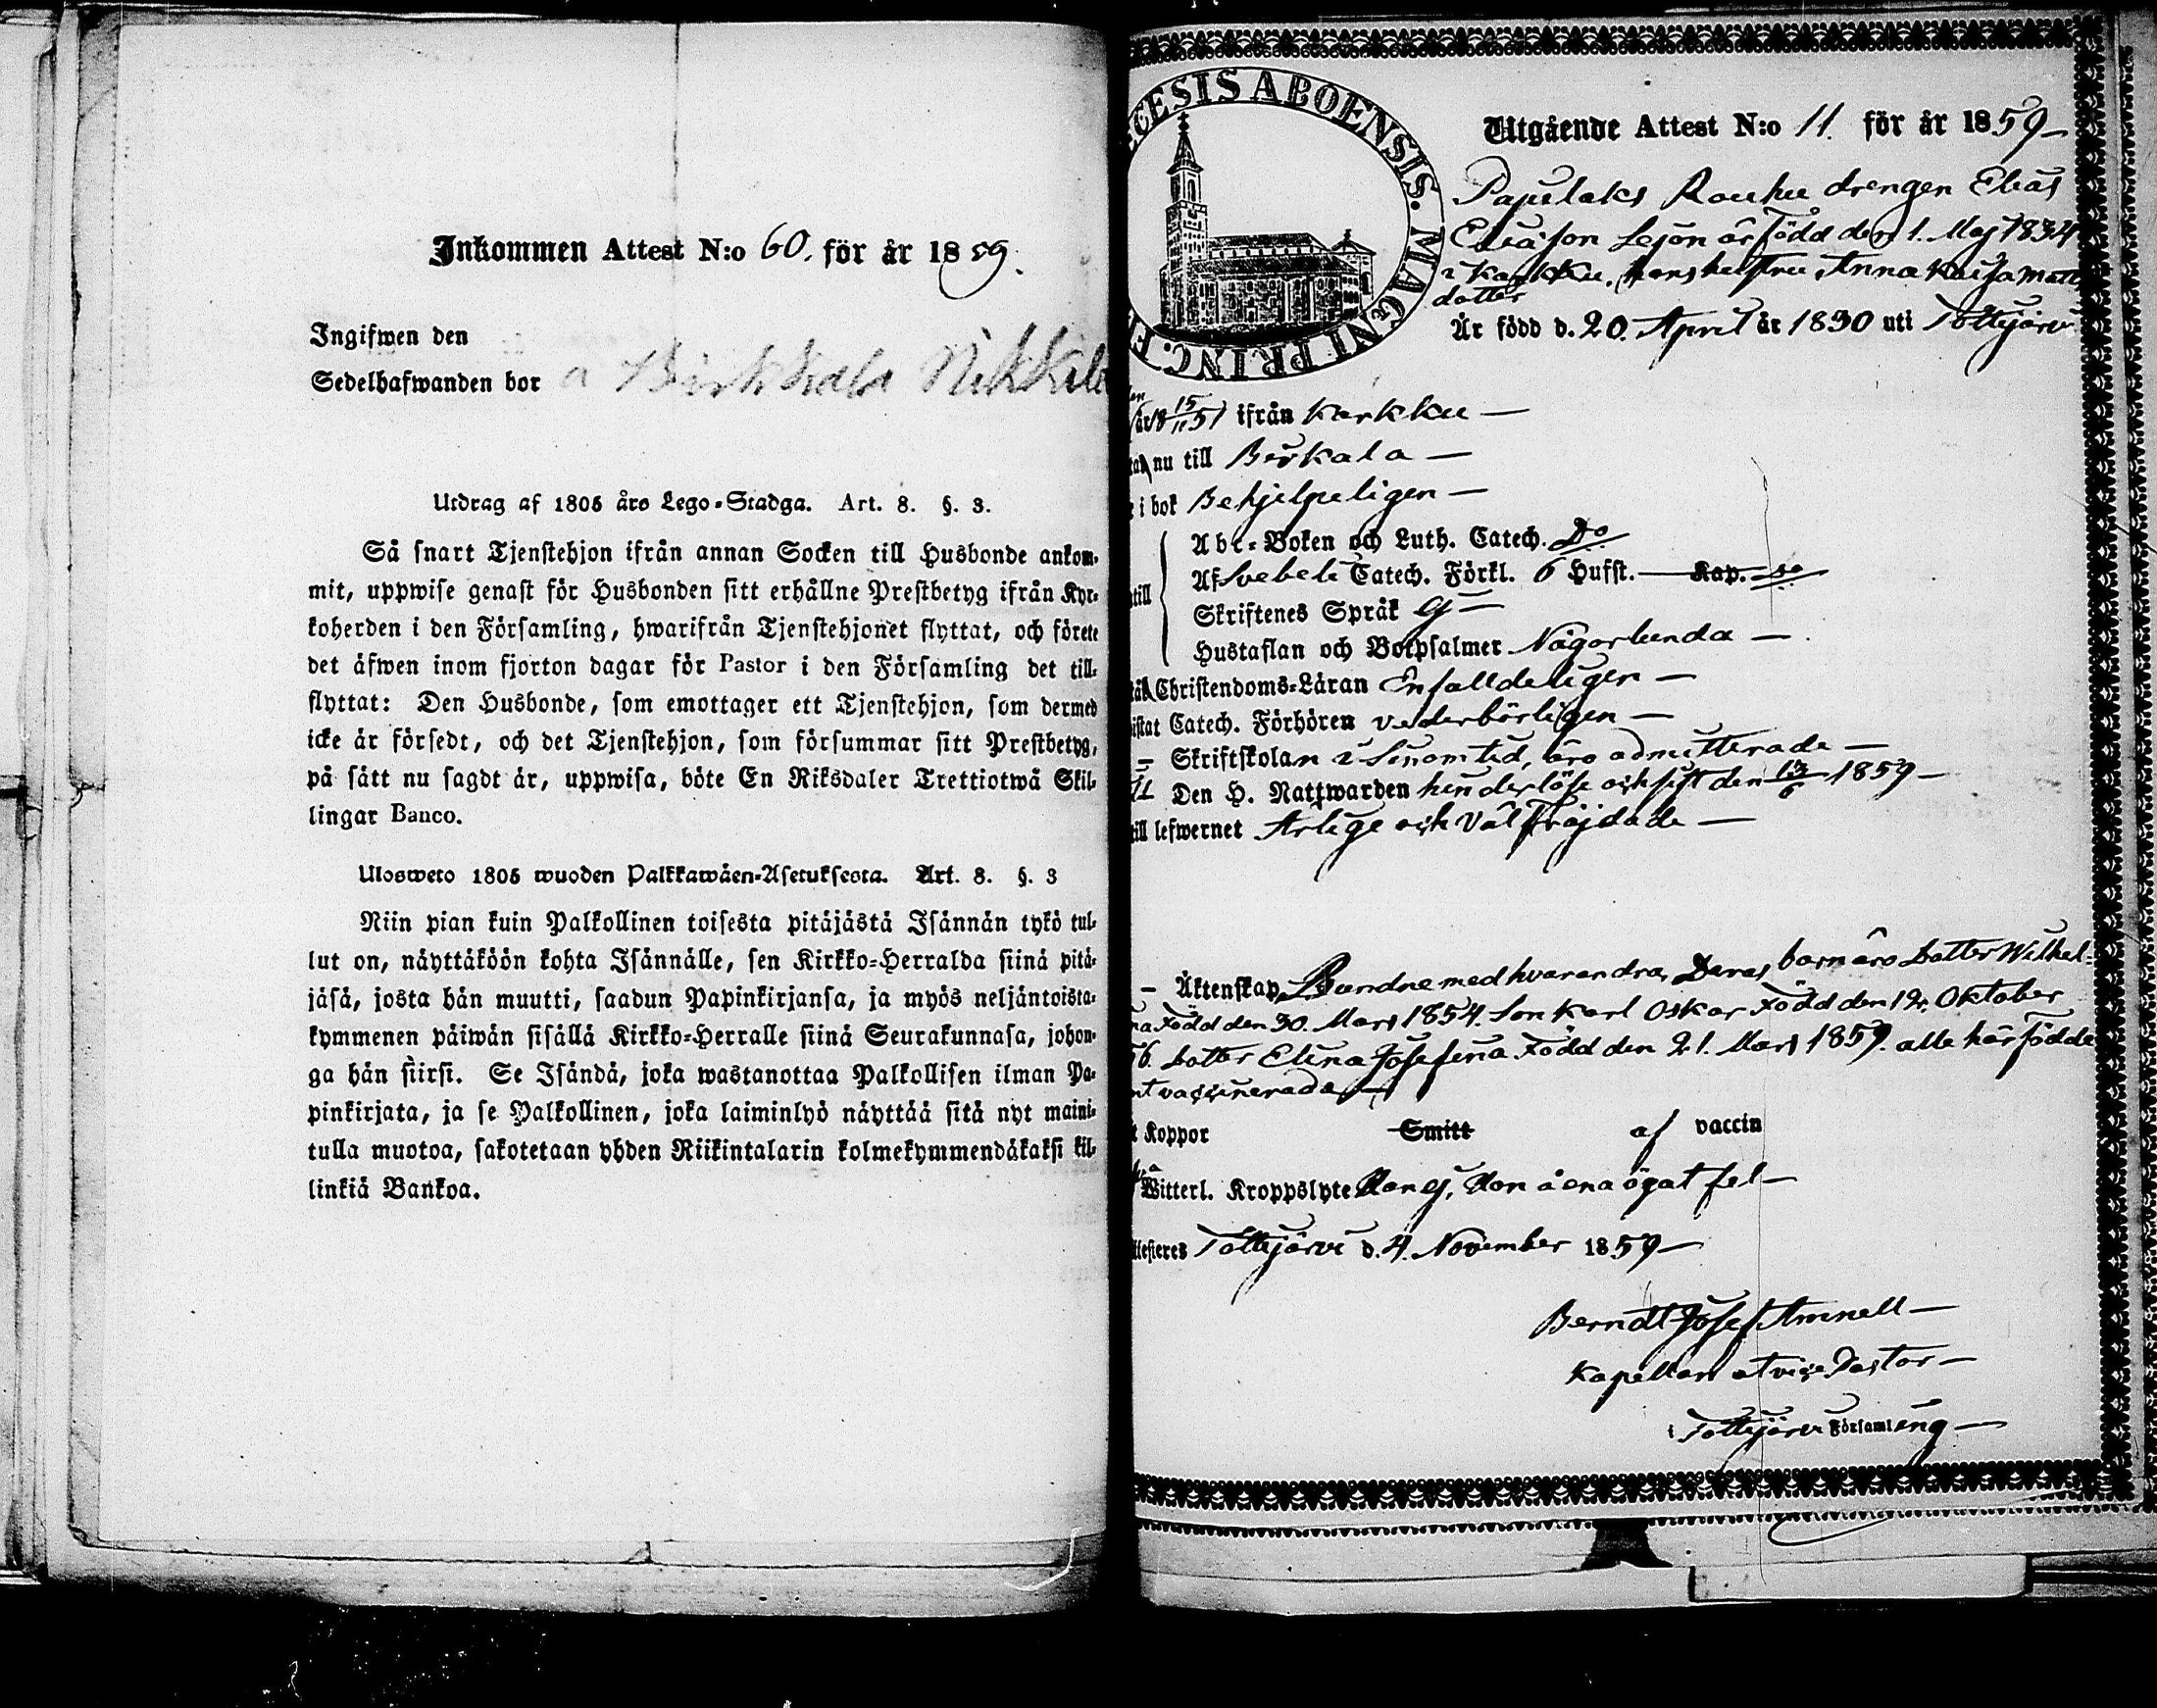 Inkommen Attest N:o 60. för år 1859.
Ingifwen den
Sedelhafwanden bor a Birkkala Nikkilä
Utdrag af 1805 års Lego-Stadga. Art. 8. §. 3.
Så snart Tjenstehjon ifrån annan Socken till Husbonde ankom-
mit, uppwise genast för Husbonden sitt erhållne Prestbetyg ifrån Kyr-
koherden i den Församling, hwarifrån Tjenstehjonet flyttat, och förete
det äfwen inom fjorton dagar för Pastor i den Församling det till-
flyttat: Den Husbonde, som emottager ett Tjenstehjon, som dermed
icke är försedt, och det Tjenstehjon, som försummar sitt Prestbetyg,
på sätt nu sagdt är, uppwisa, böte En Riksdaler Trettiotwå Skil-
lingar Banco.
Ulosweto 1805 wuoden Palkkawäen-Asetuksesta. Art. 8. §. 3
Niin pian kuin Palkollinen toisesta pitäjästä Isännän tykö tul-
lut on, näyttäköön kohta Isännälle, sen Kirkko-Herralda siinä pitä-
jäsä, josta hän muutti, saadun Papinkirjansa, ja myös neljäntoista-
kymmenen päiwän sisällä Kirkko-Herralle siinä Seurakunnasa, johon-
ga hän siirsi. Se Isändä, joka wastanottaa Palkollisen ilman Pa-
pinkirjata, ja se Palkollinen, joka laiminlyö näyttää sitä nyt maini-
tulla muotoa, sakotetaan yhden Riikintalarin kolmekymmendäkaksi kil-
linkiä Bankoa.
CESIS ABOENSIS. MAGNI PRINC. F
Utgående Attest N:o 11. för år 1859-
Papulaks Rouhu drengen Elias
Eliasson Lejon är Född den 1. Maj 1834
i Karkku, hans hustru Anna Kaisa Matts
dotter
Är född d. 20. April år 1830 uti Tottijärvi
år 18 15/11 51 ifrån Karkku —
nu till Birkala —
i bok Behjelpeligen —
Abc-Boken och Luth. Catech. Do
Af Svebeli Catech. Förkl. 6 Hufst. Kap.
till
Skriftenes Språk Ej —
Hustaflan och Botpsalmer Någorlunda —
Christendoms-Läran Enfalldeligen —
istat Catech. Förhören vederbörligen —
— Skriftskolan i Sinom tid, äro admitterade —
Den H. Nattwarden hinderlöse och sist den 13/6 1859 —
till lefwernet Ärlige och Väl Fräjdade —
— Äktenskap Bundne med hvarandra, Deras barn äro Dotter Wilhel-
na Född den 30. Mars 1854. Son Karl Oskar Född den 12. Oktober
56. Dotter Elina Josefina Född den 21. Mars 1859. alla här födde
nt vaccinerade —
t Koppor Smitt af vaccin
Witterl. Kroppslyte Han ej, Hon å ena ögat fel —
Tottijärvi d. 4. November 1859 —
Berndt Josef Amnell —
Kapellan et vice Pastor —
i Tottijärvi Församling —